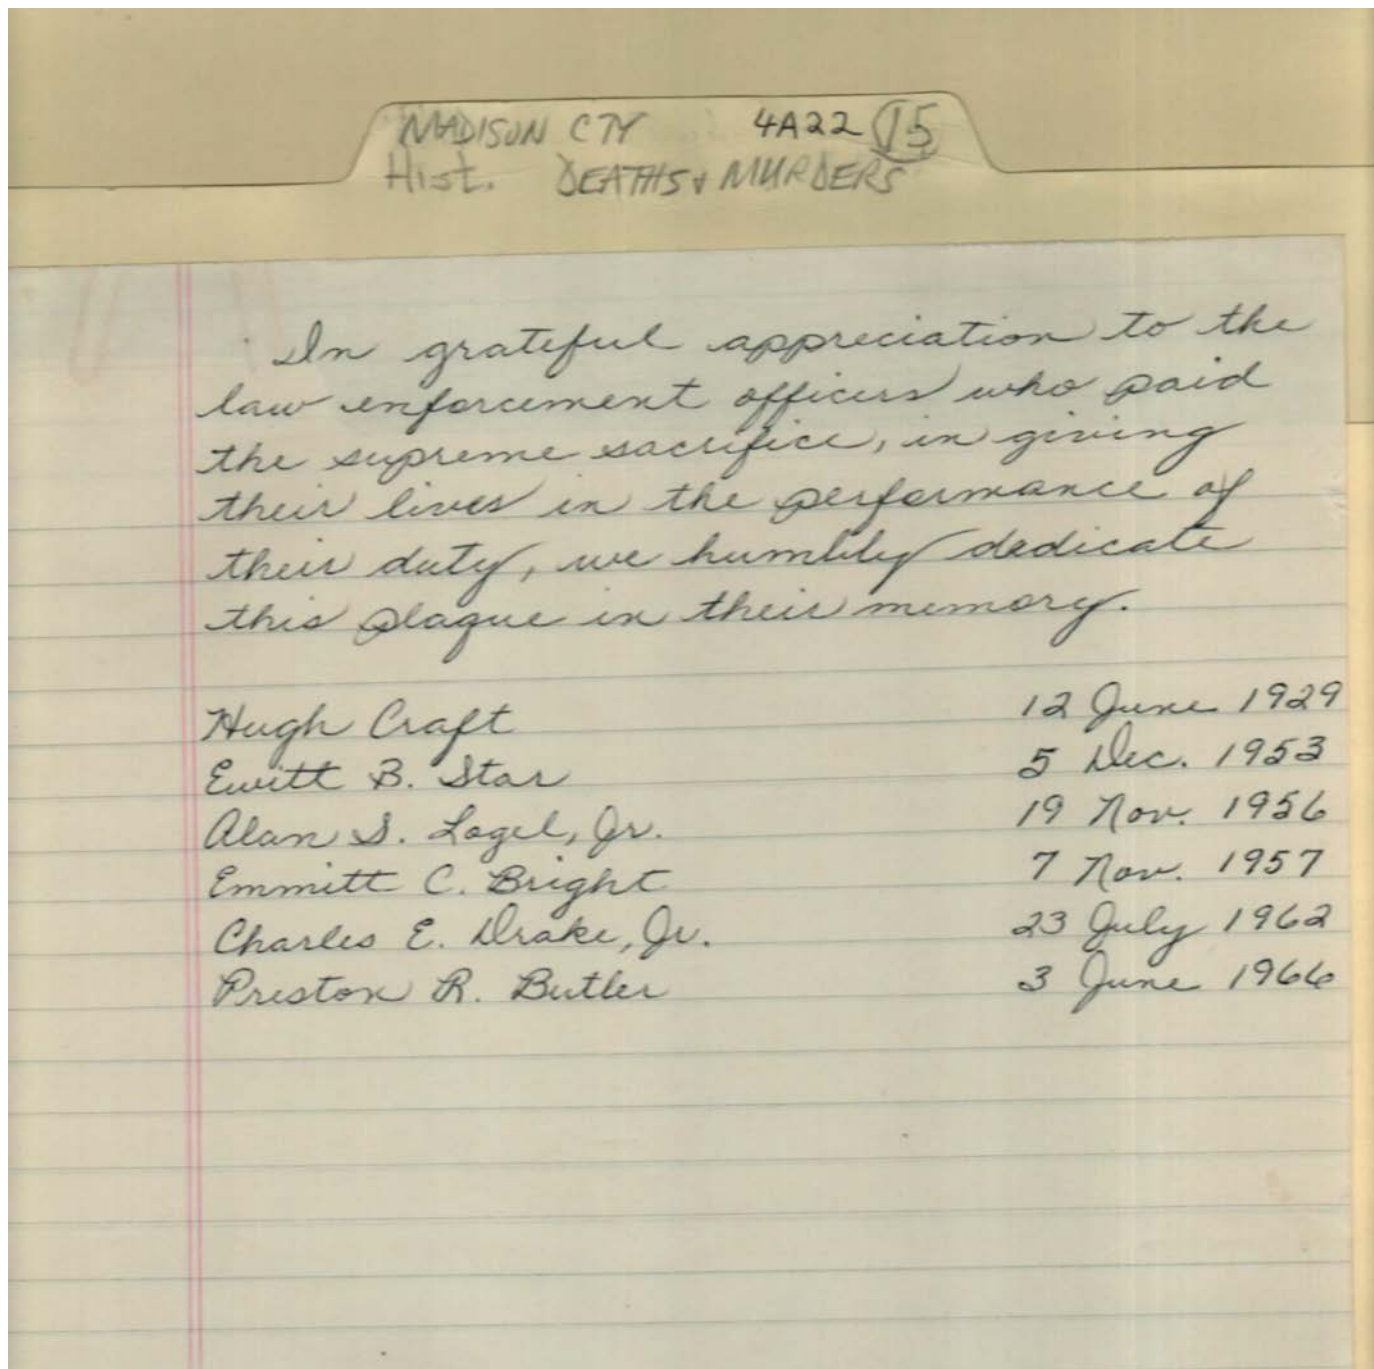 MADISON CTY 4A22 15
Hist. DEATHS & MURDERS
In grateful appreciation to the
law enforcement officers who paid
the supreme sacrifice, in giving
their lives in the performance of
their duty, we humbly dedicate
this plaque in their memory.
Hugh Craft 12 June 1929
Ewitt B. Star 5 Dec. 1953
Alan S. Logel, Jr. 19 Nov. 1956
Emmitt C. Bright 7 Nov. 1957
Charles E. Drake, Jr. 23 July 1962
Preston R. Butler 3 June 1966